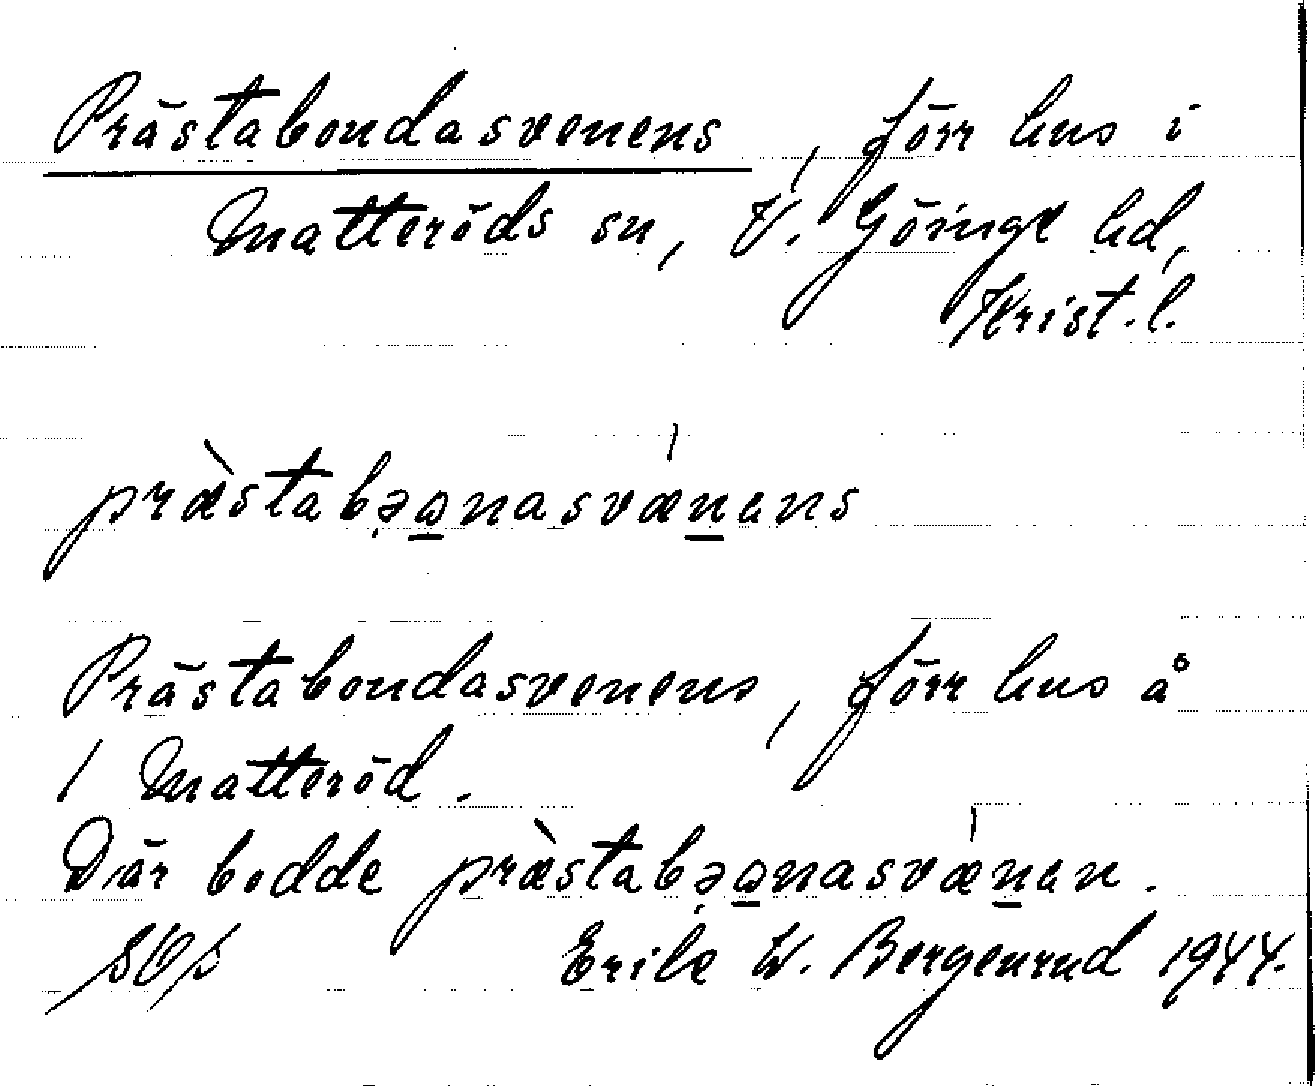 Prästabondasvenens, förr hus i
Matteröds sn, V. Göinge hd,
Krist. l.
præ̀stabəɷ̠nasvæń̠ əns
Prästabondasvenens, förr hus å
/ Matteröd.
Där bodde præ̀stabəɷ̠nasvæń̠ ən.
Erik W. Bergenrud 1944.